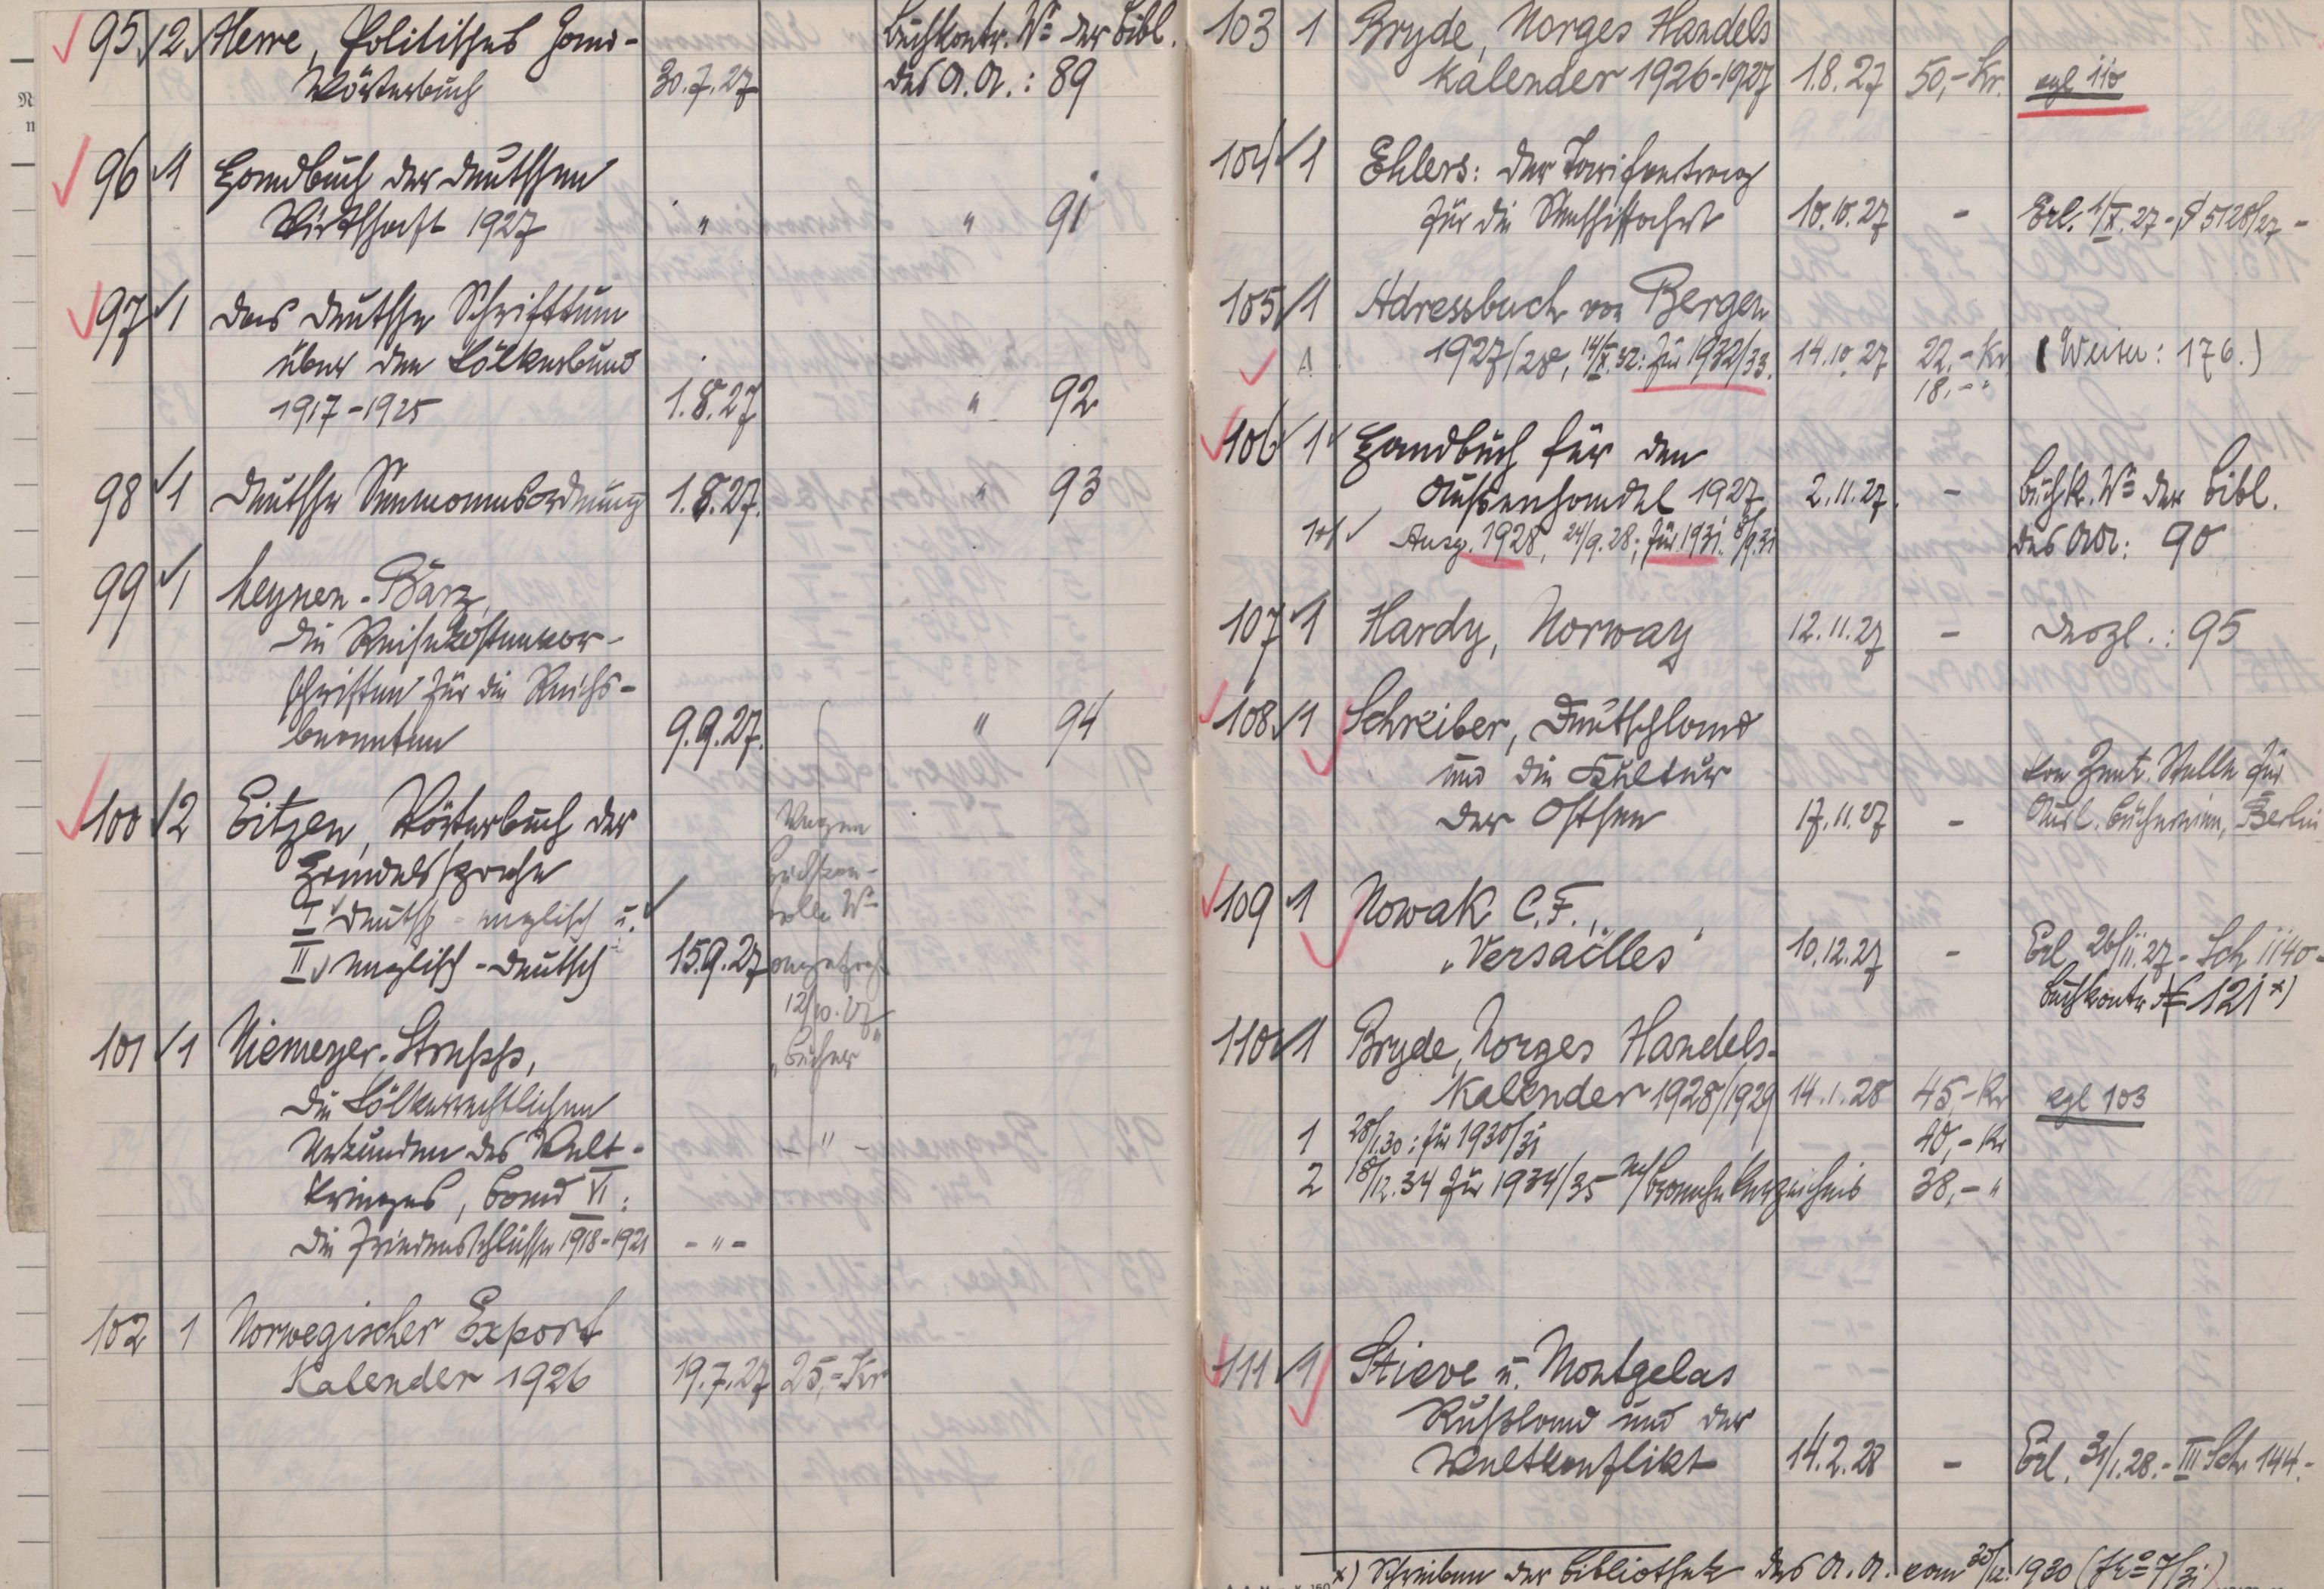 95. 2. Herre, Politisches Hand- Buchkontr. No der Bibl.
wörterbuch 30.7.27 des A.A.: 89
96 1 Handbuch der deutschen
Wirtschaft 1927 " " 91
97 1 Das deutsche Schrifttum
über den Völkerbund
1917-1925 1.8.27 " 92
98 1 Deutsche Seemannsordnung 1.8.27. " 93
99 1 Heynen-Bärz,
die Reisekostenvor-
schriften für die Reichs-
beamten 9.9.27. " 94
100 2 Eitzen, Wörterbuch der Wegen
Handelssprache Buchkon-
I deutsch-englisch u. trolle No
II englisch-deutsch 15.9.27 angefragt
12/10.27
101 1 Niemeyer-Strupp, "Bücher"
die Völkerrechtlichen
Urkunden des Welt- - " -
krieges, Band VI:
die Friedensschlüsse 1918-1921 - " -
102 1 Norwegischer Export
Kalender 1926 19.7.27 25,- Kr
103 1 Bryde, Norges Handels
Kalender 1926-1927 1.8.27 50,- Kr. vgl 110
104 1 Ehlers: Der Tarifvertrag
für die Seeschiffahrt 10.10.27 - Erl. 1/X.27 - 5128/27 -
105 1 Adressbuch von Bergen
1927/28, 14/X.32: für 1932/33. 14.10.27 22,- Kr (Weiser: 176.)
18,- "
106 1 Handbuch für den
Außenhandel 1927 2.11.27. - Buchk. No der Bibl.
Ausg. 1928, 24/9.28; für 1931. 8/9.31 des AA: 90
107 1 Hardy, Norway 12.11.27 - Desgl.: 95
108 1 Schreiber, Deutschland
und die Kultur von Zentr. Stelle für
der Ostsee 17.11.27 - Ausl. Büchereien, Berlin
109 1 Nowak C.F.,
"Versailles" 10.12.27 - Erl. 26/11.27 - Sch 1140 -
Buchkontr No 121 x)
110 1 Bryde, Norges Handels-
Kalender 1928/1929 14.1.28 45,- Kr vgl 103
1 28/1.30: für 1930/31 40,- Kr
2 18/12.34 für 1934/35 Branchenverzeichnis 38,- "
111 1 Stieve u. Montgelas
Rußland und der
Weltkonflikt 14.2.28 - Erl. 31/1.28.- III Sch 144.-
x) Schreiben der Bibliothek des A.A. vom 30/12. 1930